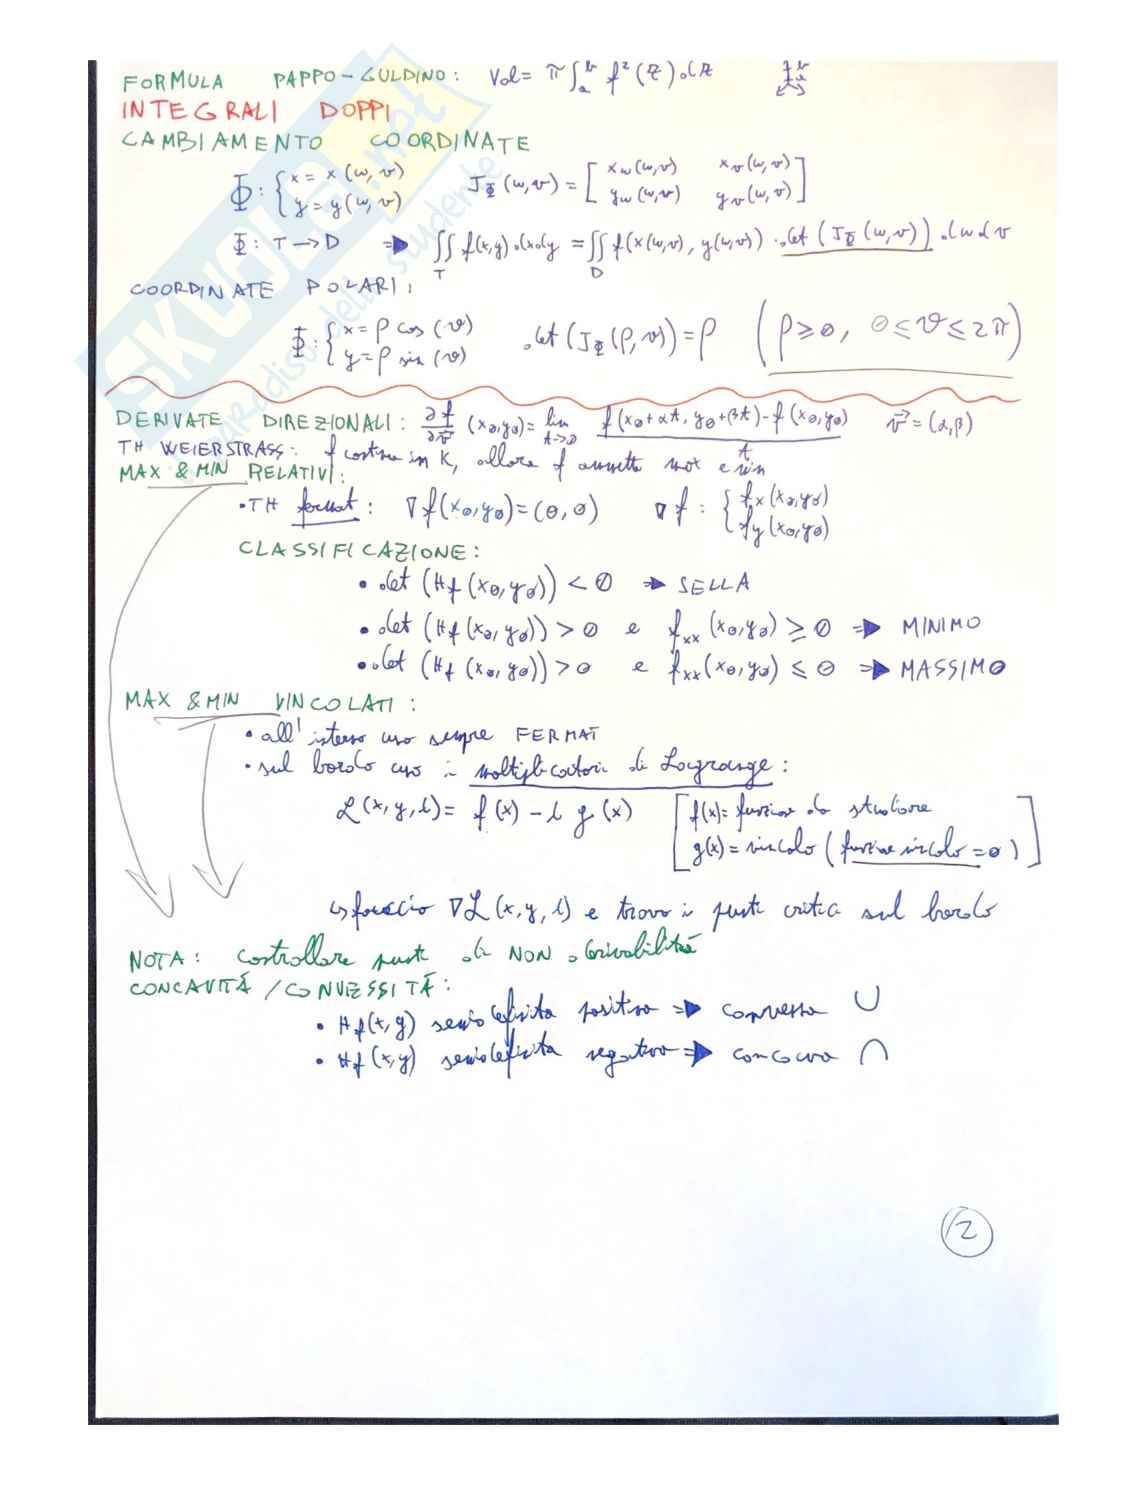 FORMULA PAPPO-GULDINO: Vol= π∫ₐᵇ f²(z) dz
INTEGRALI DOPPI
CAMBIAMENTO COORDINATE
Φ: { x = x(w,v) y = y(w,v) J_Φ(w,v) = [ x_w(w,v) x_v(w,v) y_w(w,v) y_v(w,v) ]
Φ: T → D ⇒ ∬_T f(x,y) dxdy = ∬_D f(x(w,v), y(w,v)) · det(J_Φ(w,v)) dwdv
COORDINATE POLARI:
Φ: { x = ρ cos(ϑ) y = ρ sin(ϑ) det(J_Φ(ρ,ϑ)) = ρ (ρ ≥ 0, 0 ≤ ϑ ≤ 2π)
DERIVATE DIREZIONALI: ∂f/∂v⃗ (x₀,y₀) = lim t→0 f(x₀+αt, y₀+βt) - f(x₀,y₀) / t v⃗ = (α,β)
TH WEIERSTRASS: f continua in K, allora f ammette max e min
MAX & MIN RELATIVI:
• TH fermat: ∇f(x₀,y₀) = (0,0) ∇f: { f_x(x₀,y₀) f_y(x₀,y₀)
CLASSIFICAZIONE:
• det(H_f(x₀,y₀)) < 0 ⇒ SELLA
• det(H_f(x₀,y₀)) > 0 e f_xx(x₀,y₀) ≥ 0 ⇒ MINIMO
• det(H_f(x₀,y₀)) > 0 e f_xx(x₀,y₀) ≤ 0 ⇒ MASSIMO
MAX & MIN VINCOLATI:
• all'interno uso sempre FERMAT
• sul bordo uso i moltiplicatori di Lagrange:
ℒ(x,y,l) = f(x) - l g(x) [ f(x) = funzione da studiare
g(x) = vincolo (funzione vincolo = 0) ]
↳ faccio ∇ℒ(x,y,l) e trovo i punti critici sul bordo
NOTA: controllare punti di NON derivabilità
CONCAVITÁ / CONVESSITÁ:
• H_f(x,y) semidefinita positiva ⇒ convessa ∪
• H_f(x,y) semidefinita negativa ⇒ concava ∩
2
SKUOLA.net
paradiso dello studente